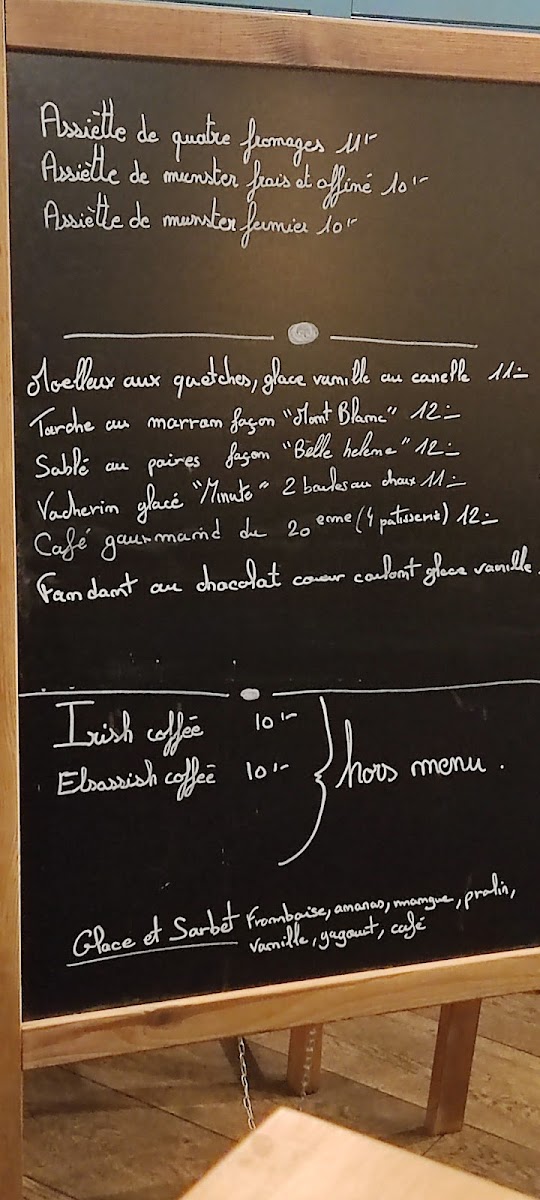 Assiètte de quatre fromages 11'-
Assiètte de munster frais et affiné 10'-
Assiètte de munster fermier 10'-
Moelleux aux quetches, glace vanille au canelle 11.-
Tarche au marram façon "Mont Blanc" 12.-
Sablé au poires façon "Bèlle helene" 12.-
Vacherin glacé "Minute" 2 boules au choux 11.-
Café gourmand du 20 eme (4 patisserie) 12.-
Fandant au chocolat coeur coulant glace vanille.
Irish coffée 10'-
Elsassish coffeé 10'-
hors menu.
Glace et Sarbet Frambaise, ananas, mangue, pralin,
vanille, yagourt, café